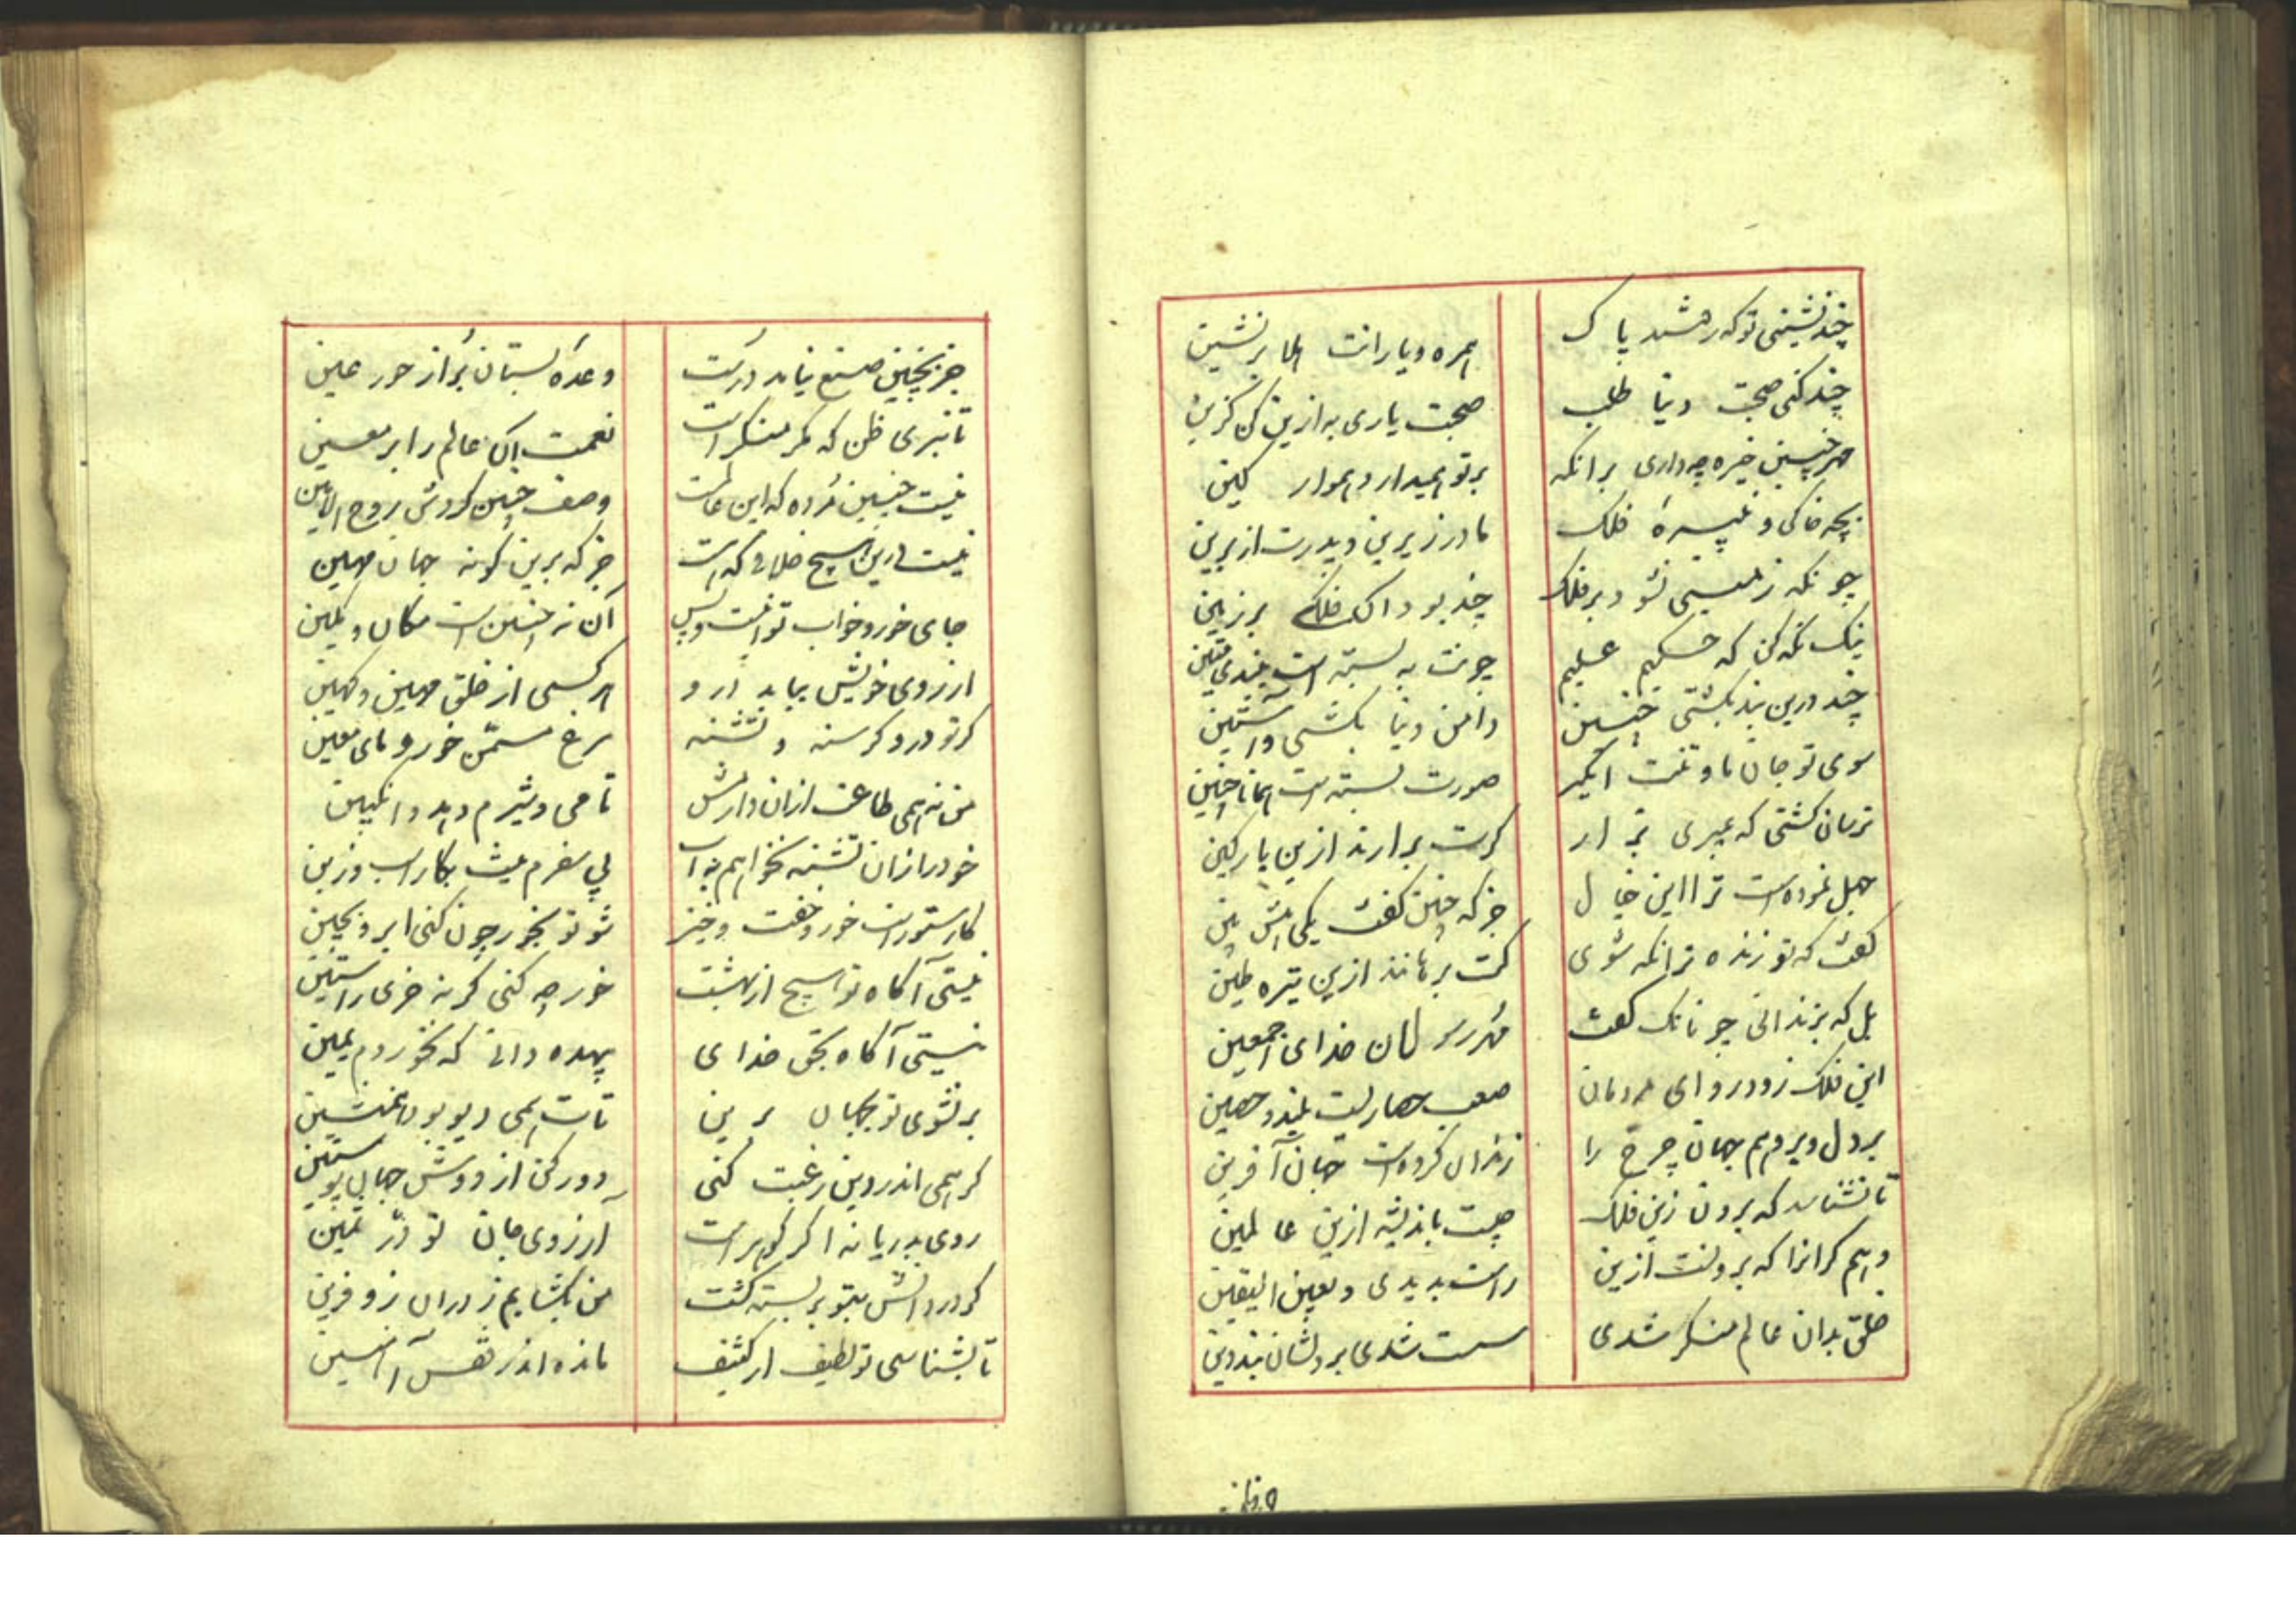 چند نشینی تو که رفتند پاک
همره و یارانت هلا برنشین
چند کنی صحبت دنیا طلب
صحبت یاری به ازین کن گزین
مهر چنین خیره چه داری برانکه
بر تو همیدارد هموار کین
بچه خاکی و نبیره فلک
مادر زیرین و پدرت از برین
چونکه زمینی نشود بر فلک
چند بود آنکه فلکی بر زمین
نیک نگه کن که حکیم علیم
چونت ببسته است ببندی متین
چند درین بند بکشتی چنین
دامن دنیا بکشی و آستین
سوی تو جان ماوتنت ایکیر
صورت بسته است همانا چنین
ترسان گشتی که بمیری بتر از
گرت برارند ازین پارگین
جهل نموده است ترا این خیال
جز که چنین گفت یکی هش ببین
گفت که تو زنده ترانگه شوی
کت برهانند ازین تیره طین
بل که بزندانی چونانک گفت
مهر رسولان خدای اجمعین
این فلک زود رو ای مردمان
صعب حصاریست بلند و حصین
بر دل و بر وهم جهان چرخ را
زندان کرده است جهان آفرین
تا نشناسد که برون زین فلک
چیست باندیشه ازین عالمین
وهم گرانرا که برونست ازین
راست بدیدی و بعین الیقین
خلق بدان عالم منکر شدی
سست شدی بر دلشان بند دین
وعده
جز بچنین صنع نیاید درست
وعده بستان پر از حور عین
تا نبری ظن که مگر منکر است
نعمت آن عالم را بر معین
نیست چنین مرده که این عالمست
وصف چنین کردش روح الامین
نیست درین هیچ خلافی که هست
جز که برین گونه جهان مهین
جای خور و خواب تو اینست و بس
آن نه چنین است مکان و مکین
آرزوی خویش بیابد درو
هر کسی از خلق مهین و کهین
گر تو درو گرسنه و تشنه
مرغ مسمن خور و مای معین
من نه همی طاعت ازان دارمش
تا می و شیرم دهد و انگبین
خود را زان تشنه نخواهم به آب
پی سفرم نیست بکار اسب و زین
کار ستورانست خور و خفت و خیز
شو تو بخور چون کنی ابرو بچین
نیستی آگاه تو هیچ از بهشت
خور چه کنی گر نه خری راستین
نیستی آگاه بحق خدای
بیهده دانی که نخوردم یمین
بر نشوی تو بجهان برین
تات همی دیو بود همنشین
گر همی اندر دین رغبت کنی
دور کن از دوش جهان پوستین
روی بدریا نه اگر گوهر است
آرزوی جان تو در ثمین
گر در دانش بتو بر بسته گشت
من بگشایم ز در آن زوفرین
تا بشناسی تو لطیف از کثیف
مانده اندر قفس آهنین